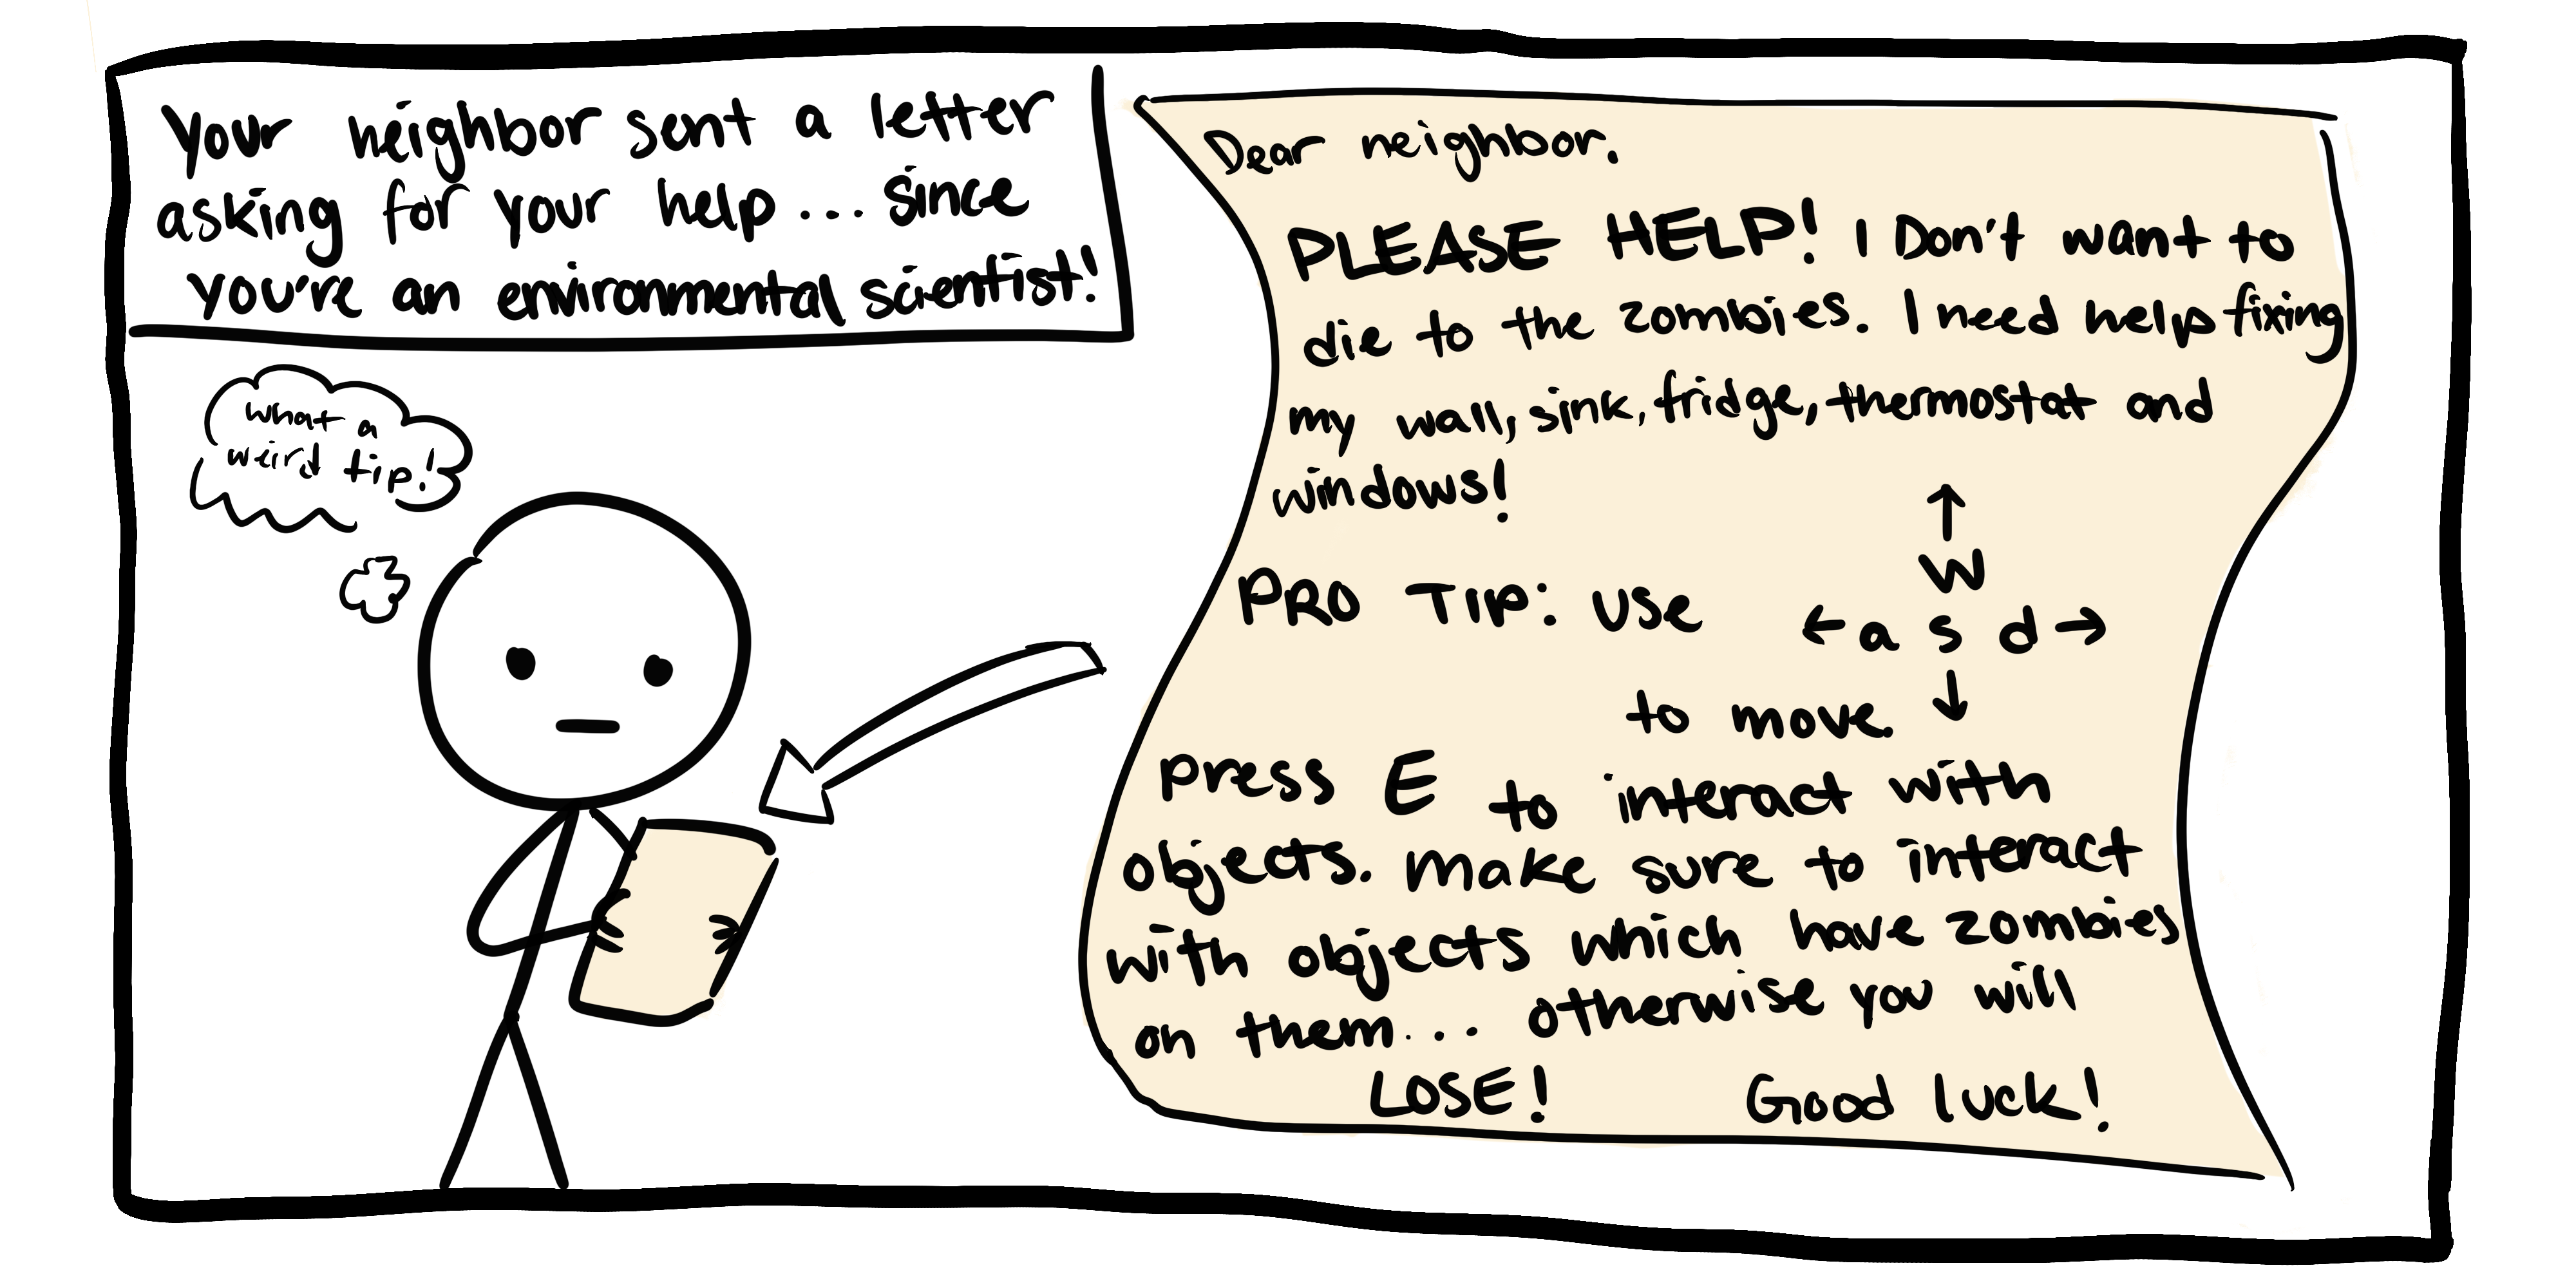 Your neighbor sent a letter
asking for your help... since
you're an environmental scientist!
what a
weird tip!
Dear neighbor.
PLEASE HELP! I Don't want to
die to the zombies. I need help fixing
my wall, sink, fridge, thermostat and
windows!
↑
W
PRO TIP: use ← a s d →
to move. ↓
press E to interact with
objects. make sure to interact
with objects which have zombies
on them... otherwise you will
LOSE! Good luck!